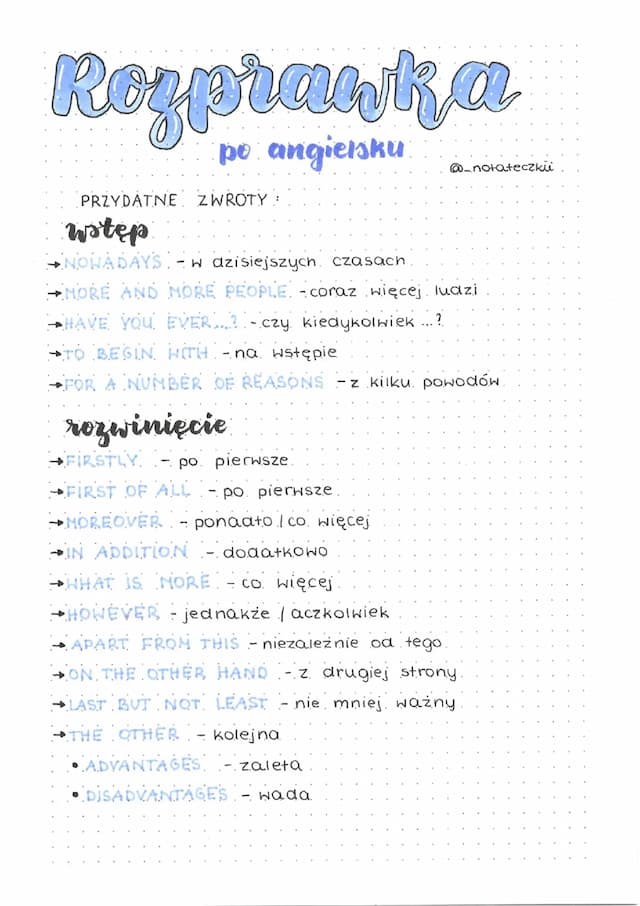 Rozprawka
po angielsku
@_notateczkii
PRZYDATNE ZWROTY:
wstęp
→ NOWADAYS - w dzisiejszych czasach
→ MORE AND MORE PEOPLE - coraz więcej ludzi
→ HAVE YOU EVER...? - czy kiedykolwiek ...?
→ TO BEGIN WITH - na wstępie
→ FOR A NUMBER OF REASONS - z kilku powodów
rozwinięcie
→ FIRSTLY - po pierwsze
→ FIRST OF ALL - po pierwsze
→ MOREOVER - ponadto / co więcej
→ IN ADDITION - dodatkowo
→ WHAT IS MORE - co więcej
→ HOWEVER - jednakże / aczkolwiek
→ APART FROM THIS - niezależnie od tego
→ ON THE OTHER HAND - z drugiej strony
→ LAST BUT NOT LEAST - nie mniej ważny
→ THE OTHER - kolejna
• ADVANTAGES - zaleta
• DISADVANTAGES - wada